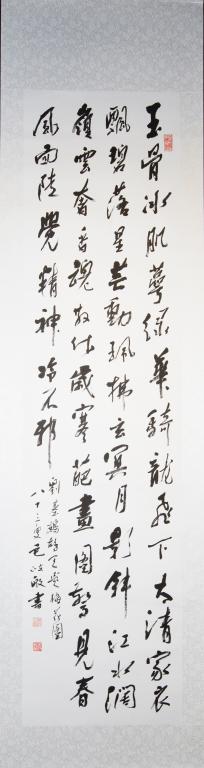 玉骨冰肌萼綠華騎龍飛下太清家衣
飄碧落星芒動珮拂玄冥月影斜江水濶
嶺雲奢香魂放作歲寒葩畫圖驚見春
風面陡覺精神冷不邪
劉基鷓鴣天題梅花圖
八十三叟毛敏書